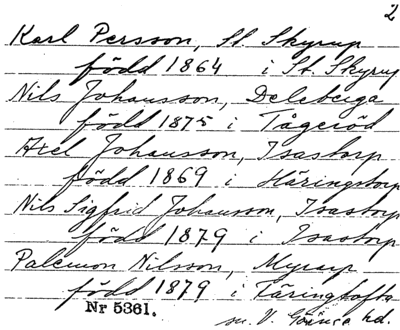 2
Karl Persson, St. Skyrup
född 1864 i St. Skyrup
Nils Johansson, Deleberga
född 1875 i Tågeröd
Axel Johansson, Isastorp
född 1869 i Häringstorp
Nils Sigfrid Johansson, Isastorp
född 1879 i Isastorp
Palemon Nilsson, Myrarp
född 1879 i Färingtofta
Nr 5361.
sv. V. Göinge hd.